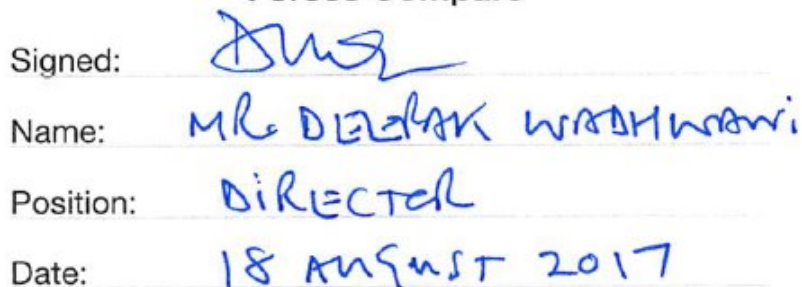 Signed:
Name: MR. DEEPAK WADHWANI
Position: DIRECTOR
Date: 18 AUGUST 2017